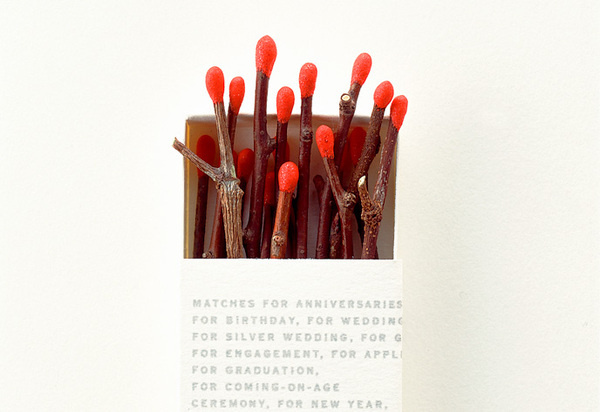 MATCHES FOR ANNIVERSARIES
FOR BIRTHDAY, FOR WEDDING
FOR SILVER WEDDING, FOR G
FOR ENGAGEMENT, FOR APPL
FOR GRADUATION,
FOR COMING-ON-AGE
CEREMONY, FOR NEW YEAR,